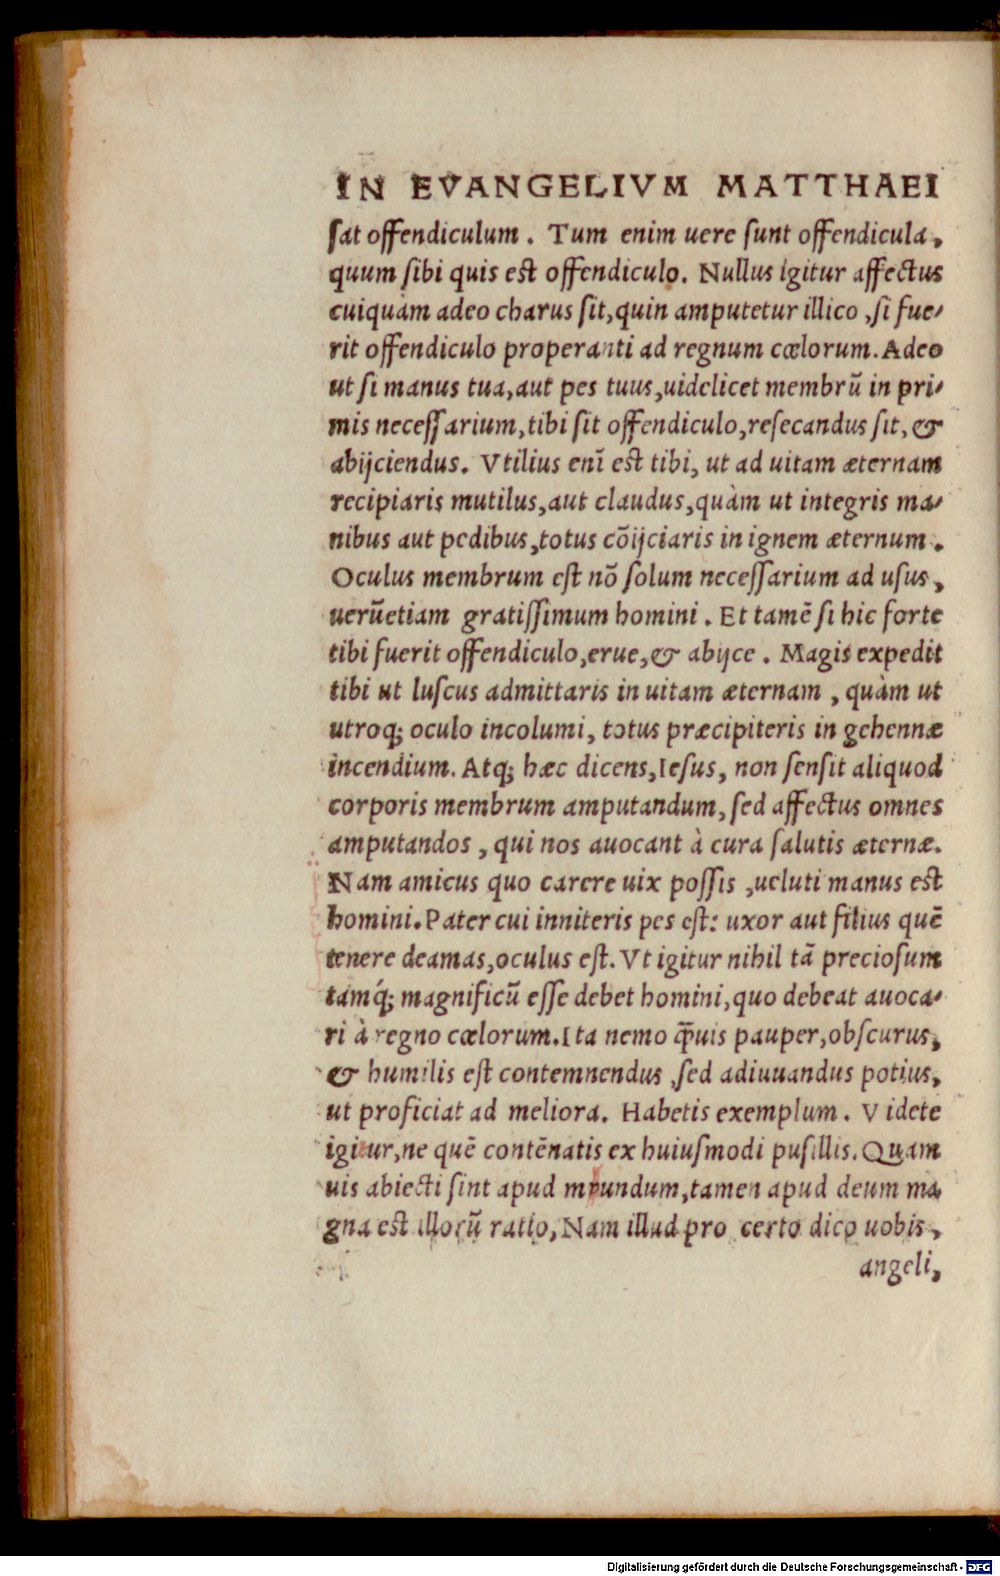 IN EVANGELIVM MATTHAEI
sat offendiculum . Tum enim uere sunt offendicula,
quum sibi quis est offendiculo. Nullus igitur affectus
cuiquàm adeo charus sit,quin amputetur illico ,si fue/
rit offendiculo properanti ad regnum cœlorum. Adeo
ut si manus tua,aut pes tuus,uidelicet membrũ in pri/
mis necessarium,tibi sit offendiculo,resecandus sit, &
abijciendus. Vtilius enĩ est tibi, ut ad uitam æternam
recipiaris mutilus,aut claudus,quàm ut integris ma/
nibus aut pedibus,totus cõijciaris in ignem æternum .
Oculus membrum est nõ solum necessarium ad usus,
uerũetiam gratissimum homini . Et tamẽ si hic forte
tibi fuerit offendiculo,erue,& abijce . Magis expedit
tibi ut luscus admittaris in uitam æternam , quàm ut
utroq; oculo incolumi, totus præcipiteris in gehennæ
incendium. Atq; hæc dicens,Iesus, non sensit aliquod
corporis membrum amputandum, sed affectus omnes
amputandos , qui nos auocant à cura salutis æternæ.
Nam amicus quo carere uix possis ,ueluti manus est
homini. Pater cui inniteris pes est: uxor aut filius quẽ
tenere deamas,oculus est. Vt igitur nihil tã preciosum
tamq́; magnificũ esse debet homini,quo debeat auoca/
ri à regno cœlorum. Ita nemo q̃uis pauper,obscurus,
& humilis est contemnendus ,sed adiuuandus potius,
ut proficiat ad meliora. Habetis exemplum . Videte
igitur,ne quẽ contẽnatis ex huiusmodi pusillis. Quam
uis abiecti sint apud mpundum,tamen apud deum ma
gna est illorũ ratio, Nam illud pro certo dico uobis,
angeli,
Digitalisierung gefördert durch die Deutsche Forschungsgemeinschaft - DFG